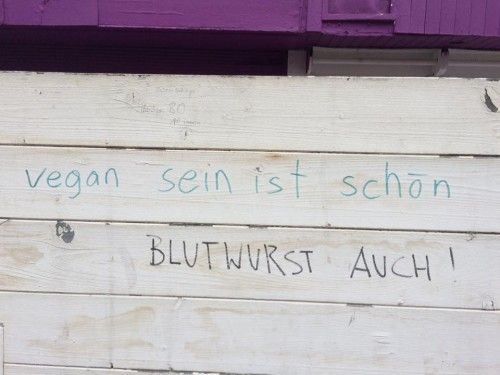 vegan sein ist schön
BLUTWURST AUCH!